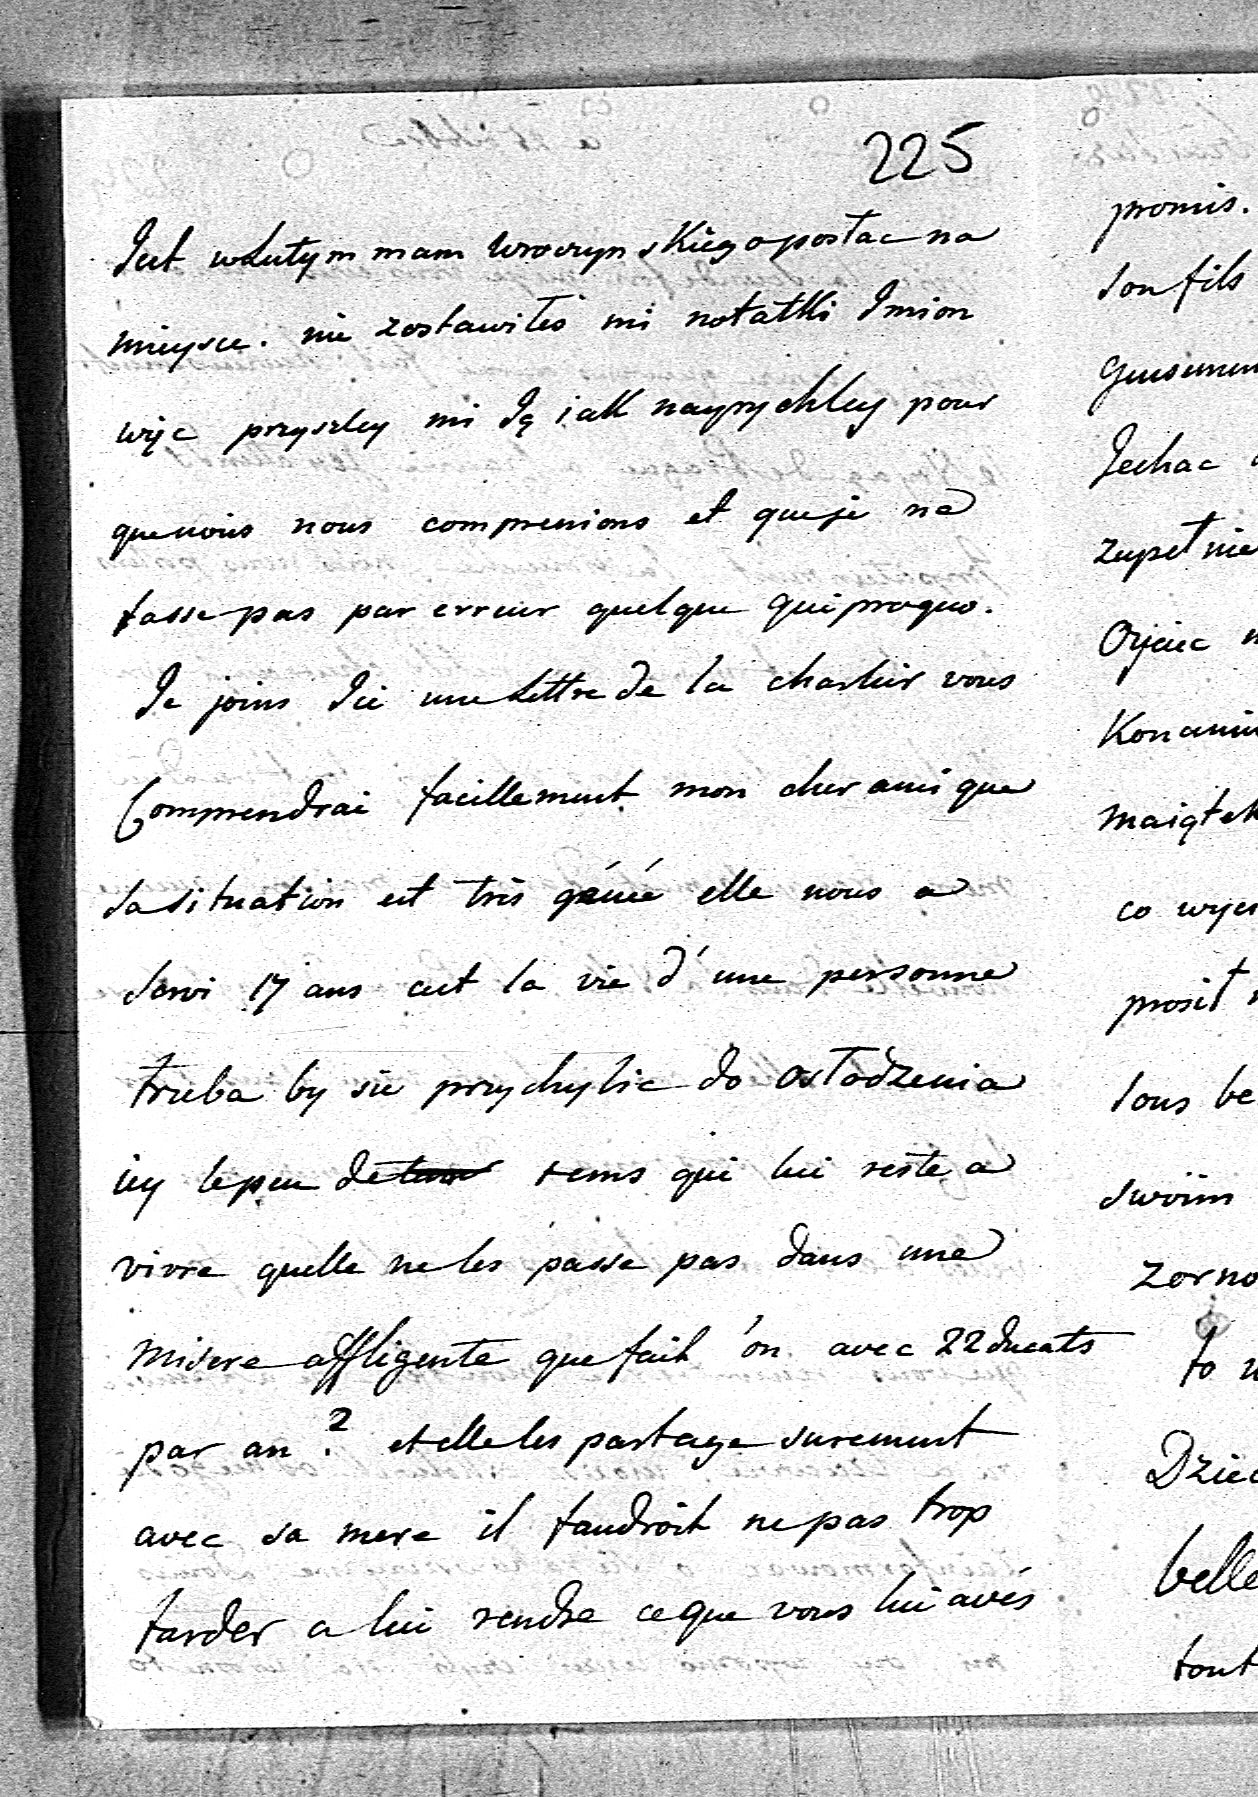 225
Jest w Lutym mam Wroczynskiego posłac na
mieysce. nie zostawiłes mi notatki Imion
więc przyszley mi Ją iak nayrychley pour
que nous nous comprenions et que je ne
fasse pas par erreur quelque quiproquo.
Je joins Ici une Lettre de la charlier vous
Comprendrai facillement mon cher ami que
sa situation est très génée elle nous a
servi 17 ans cest la vie d'une personne
trzeba by sie przychylic do osłodzenia
iey le peu de tems qui lui reste a
vivre quelle ne les passe pas dans une
misere affligente que fait 'on avec 22 ducats
par an ? et elle les partage surement
avec sa mere il faudroit ne pas trop
tarder a lui rendre ce que vous lui avés
promis.
son fils
Jechac
zupełnie
Oyciec
maiątek
co
prosił
sous
swoim
to
belle
tout